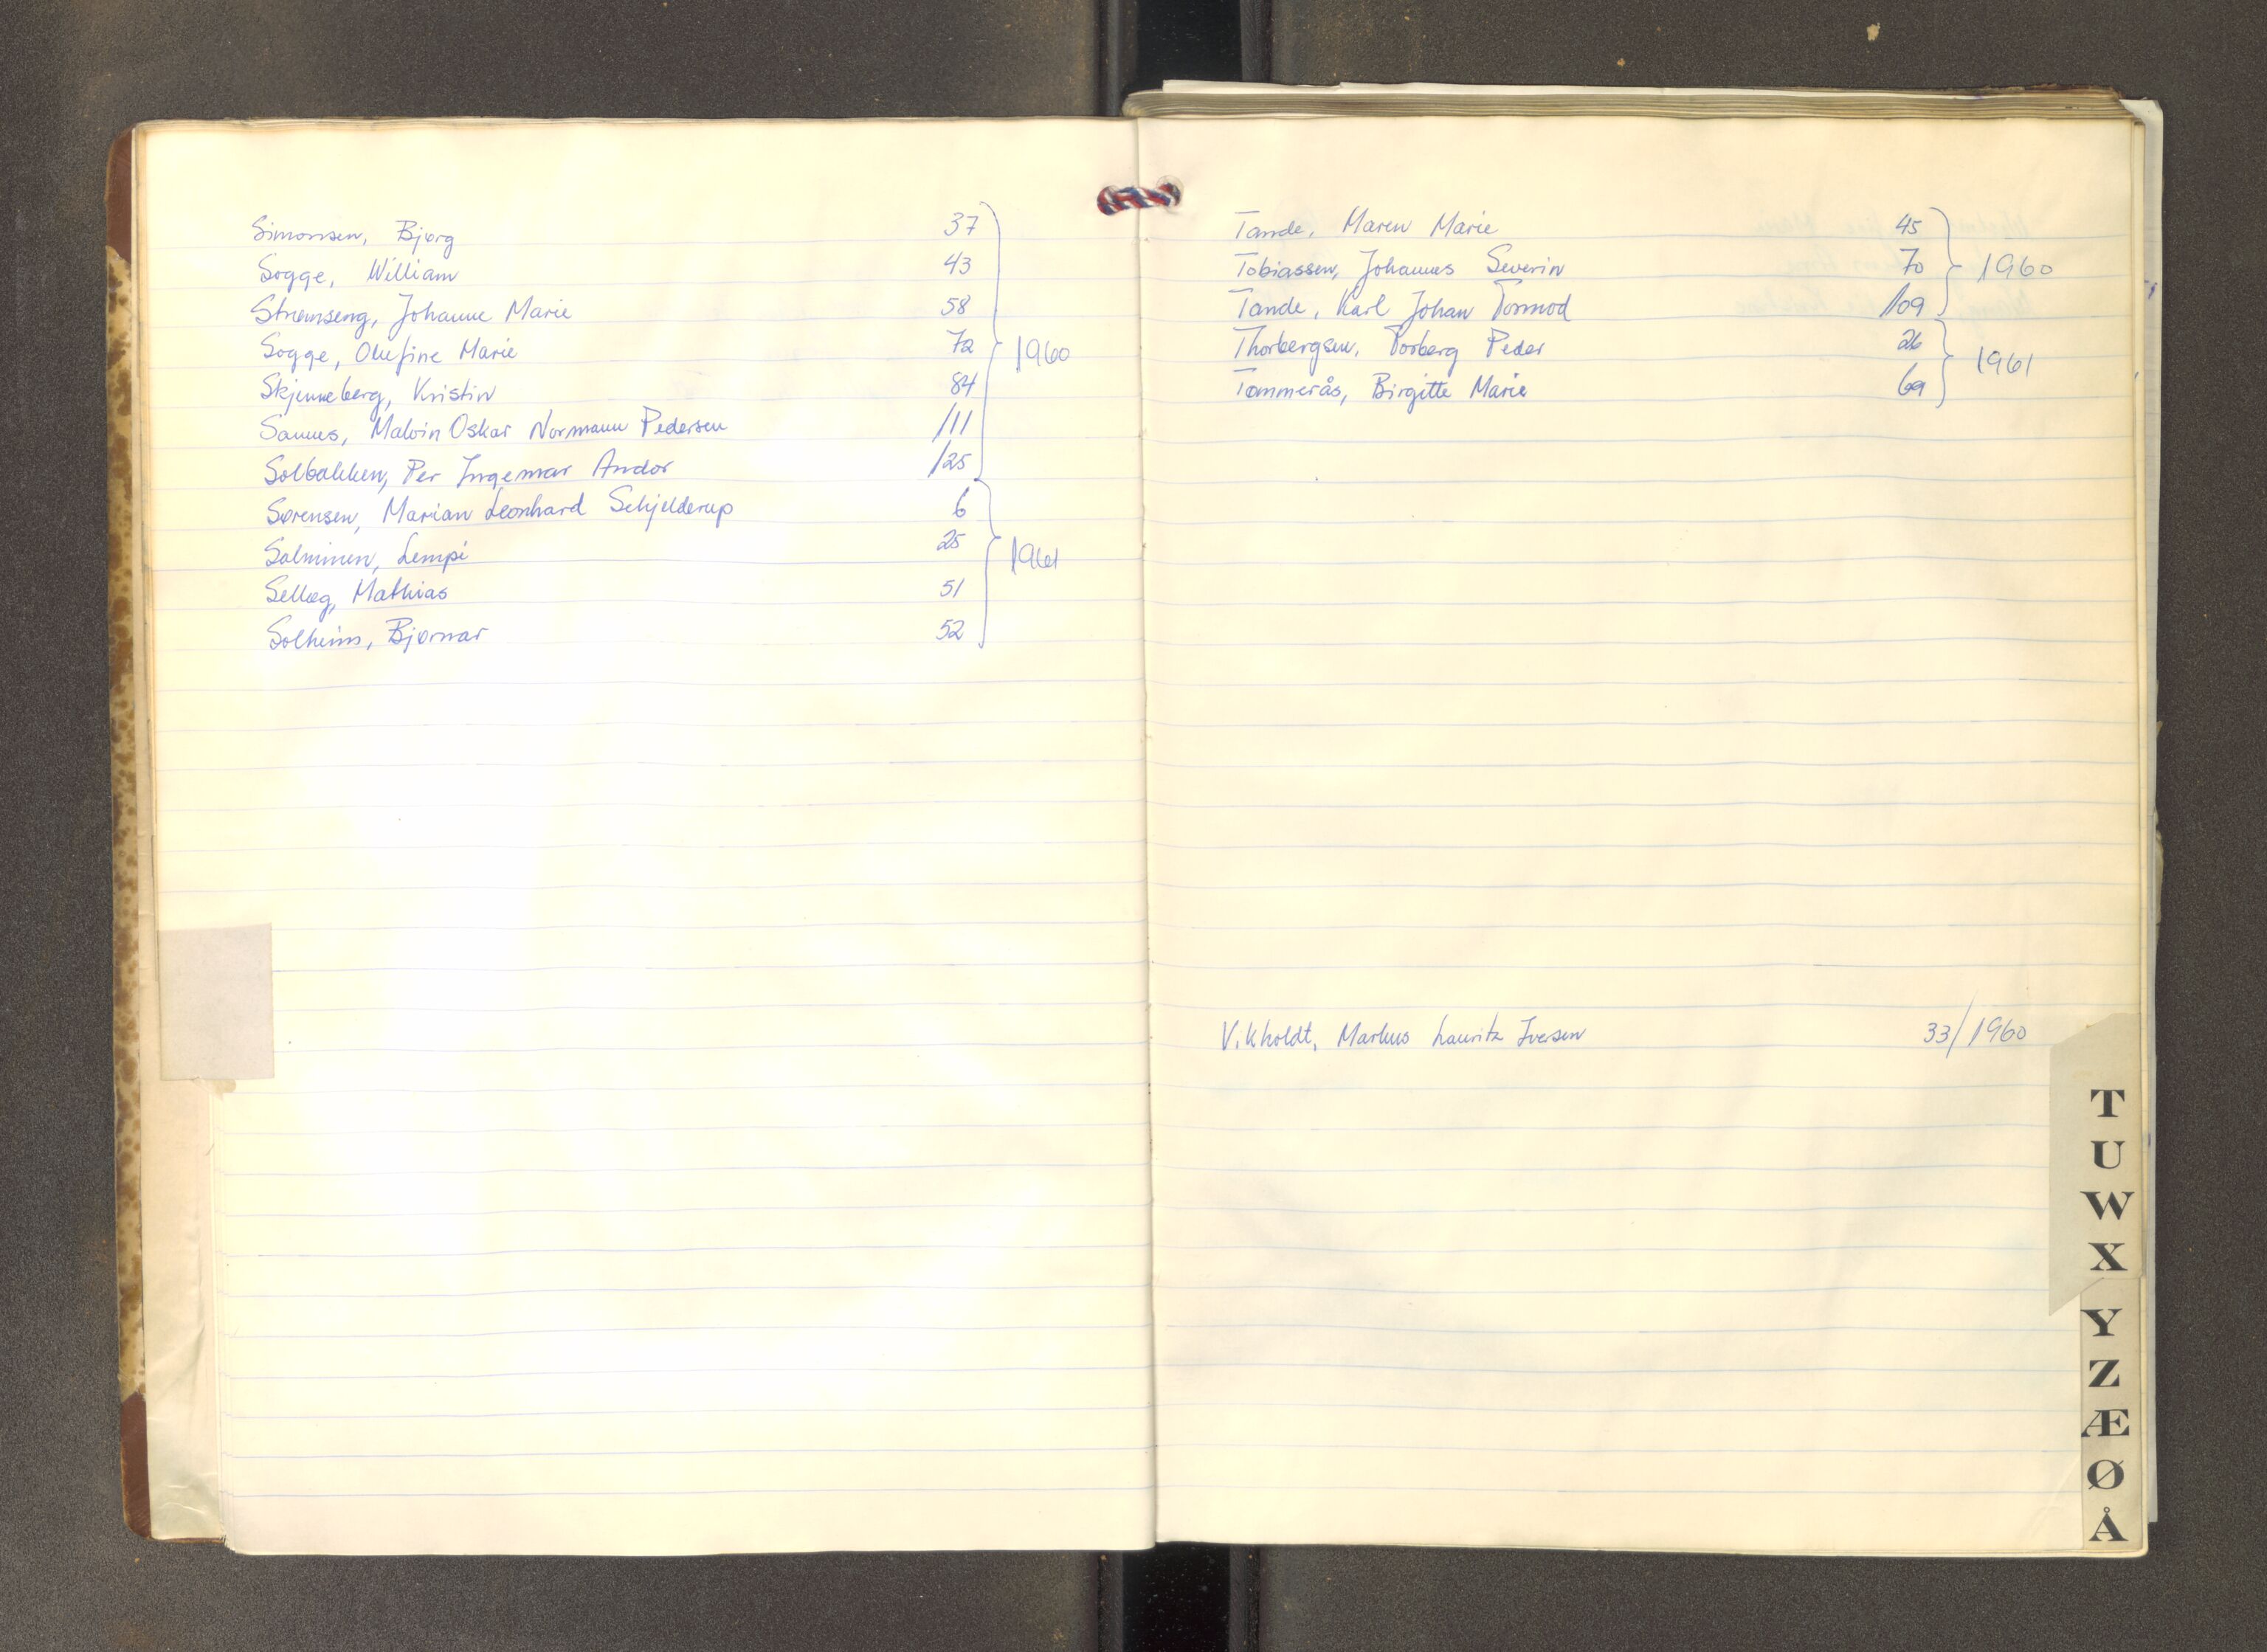 Simonsen, Bjørg 37
Sogge, William 43
Strømseng, Johanne Marie 58
Sogge, Olufine Marie 72
1960
Skjenneberg, Kristin 84
Sannes, Malvin Oskar Normann Pedersen 111
Solbakken, Per Ingemar Andor 125
Sørensen, Marian Leonhard Schjelderup 6
Salminen, Lempi 25
1961
Sellæg, Mathias 51
Solheim, Bjørnar 52
Tande, Maren Marie 45
Tobiassen, Johannes Severin 70
1960
Tande, Karl Johan Tormod 109
Thorbergsen, Torberg Peder 26
1961
Tømmerås, Birgitte Marie 69
Vikholdt, Markus Lauritz Iversen 33/1960
T
U
W
X
Y
Z
Æ
Ø
Å